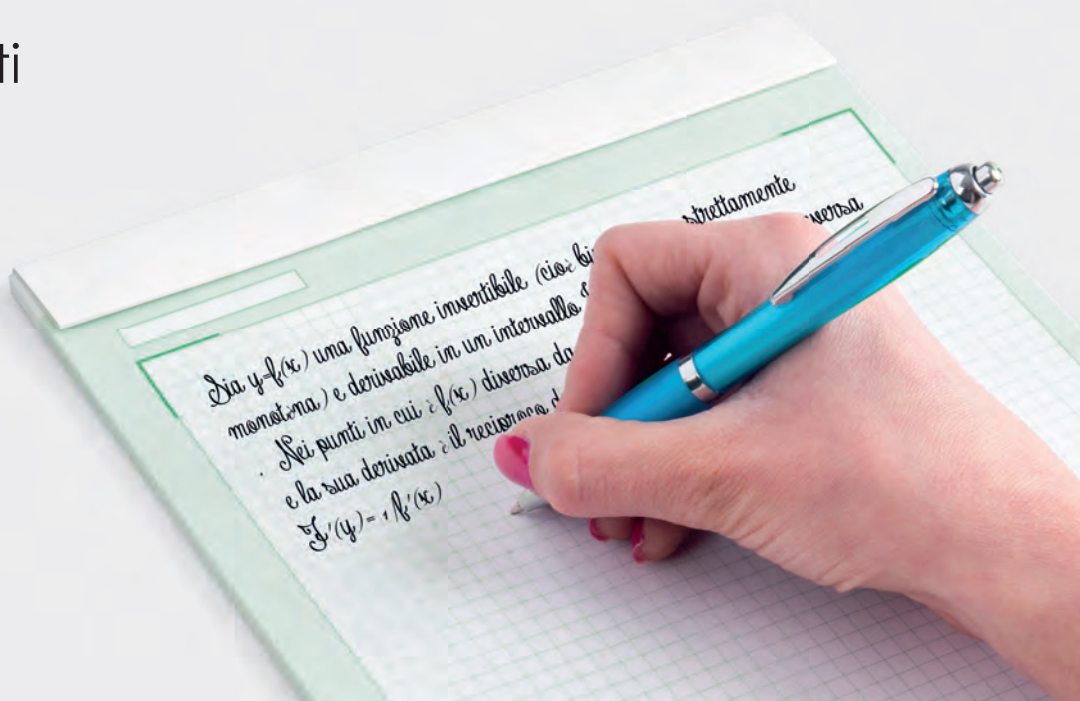 ti
Sia y=f(x) una funzione invertibile (cioè strettamente
monotòna) e derivabile in un intervallo
. Nei punti in cui è f(x) diversa da
e la sua derivata è il reciproco
F'(y) = 1 f'(x)